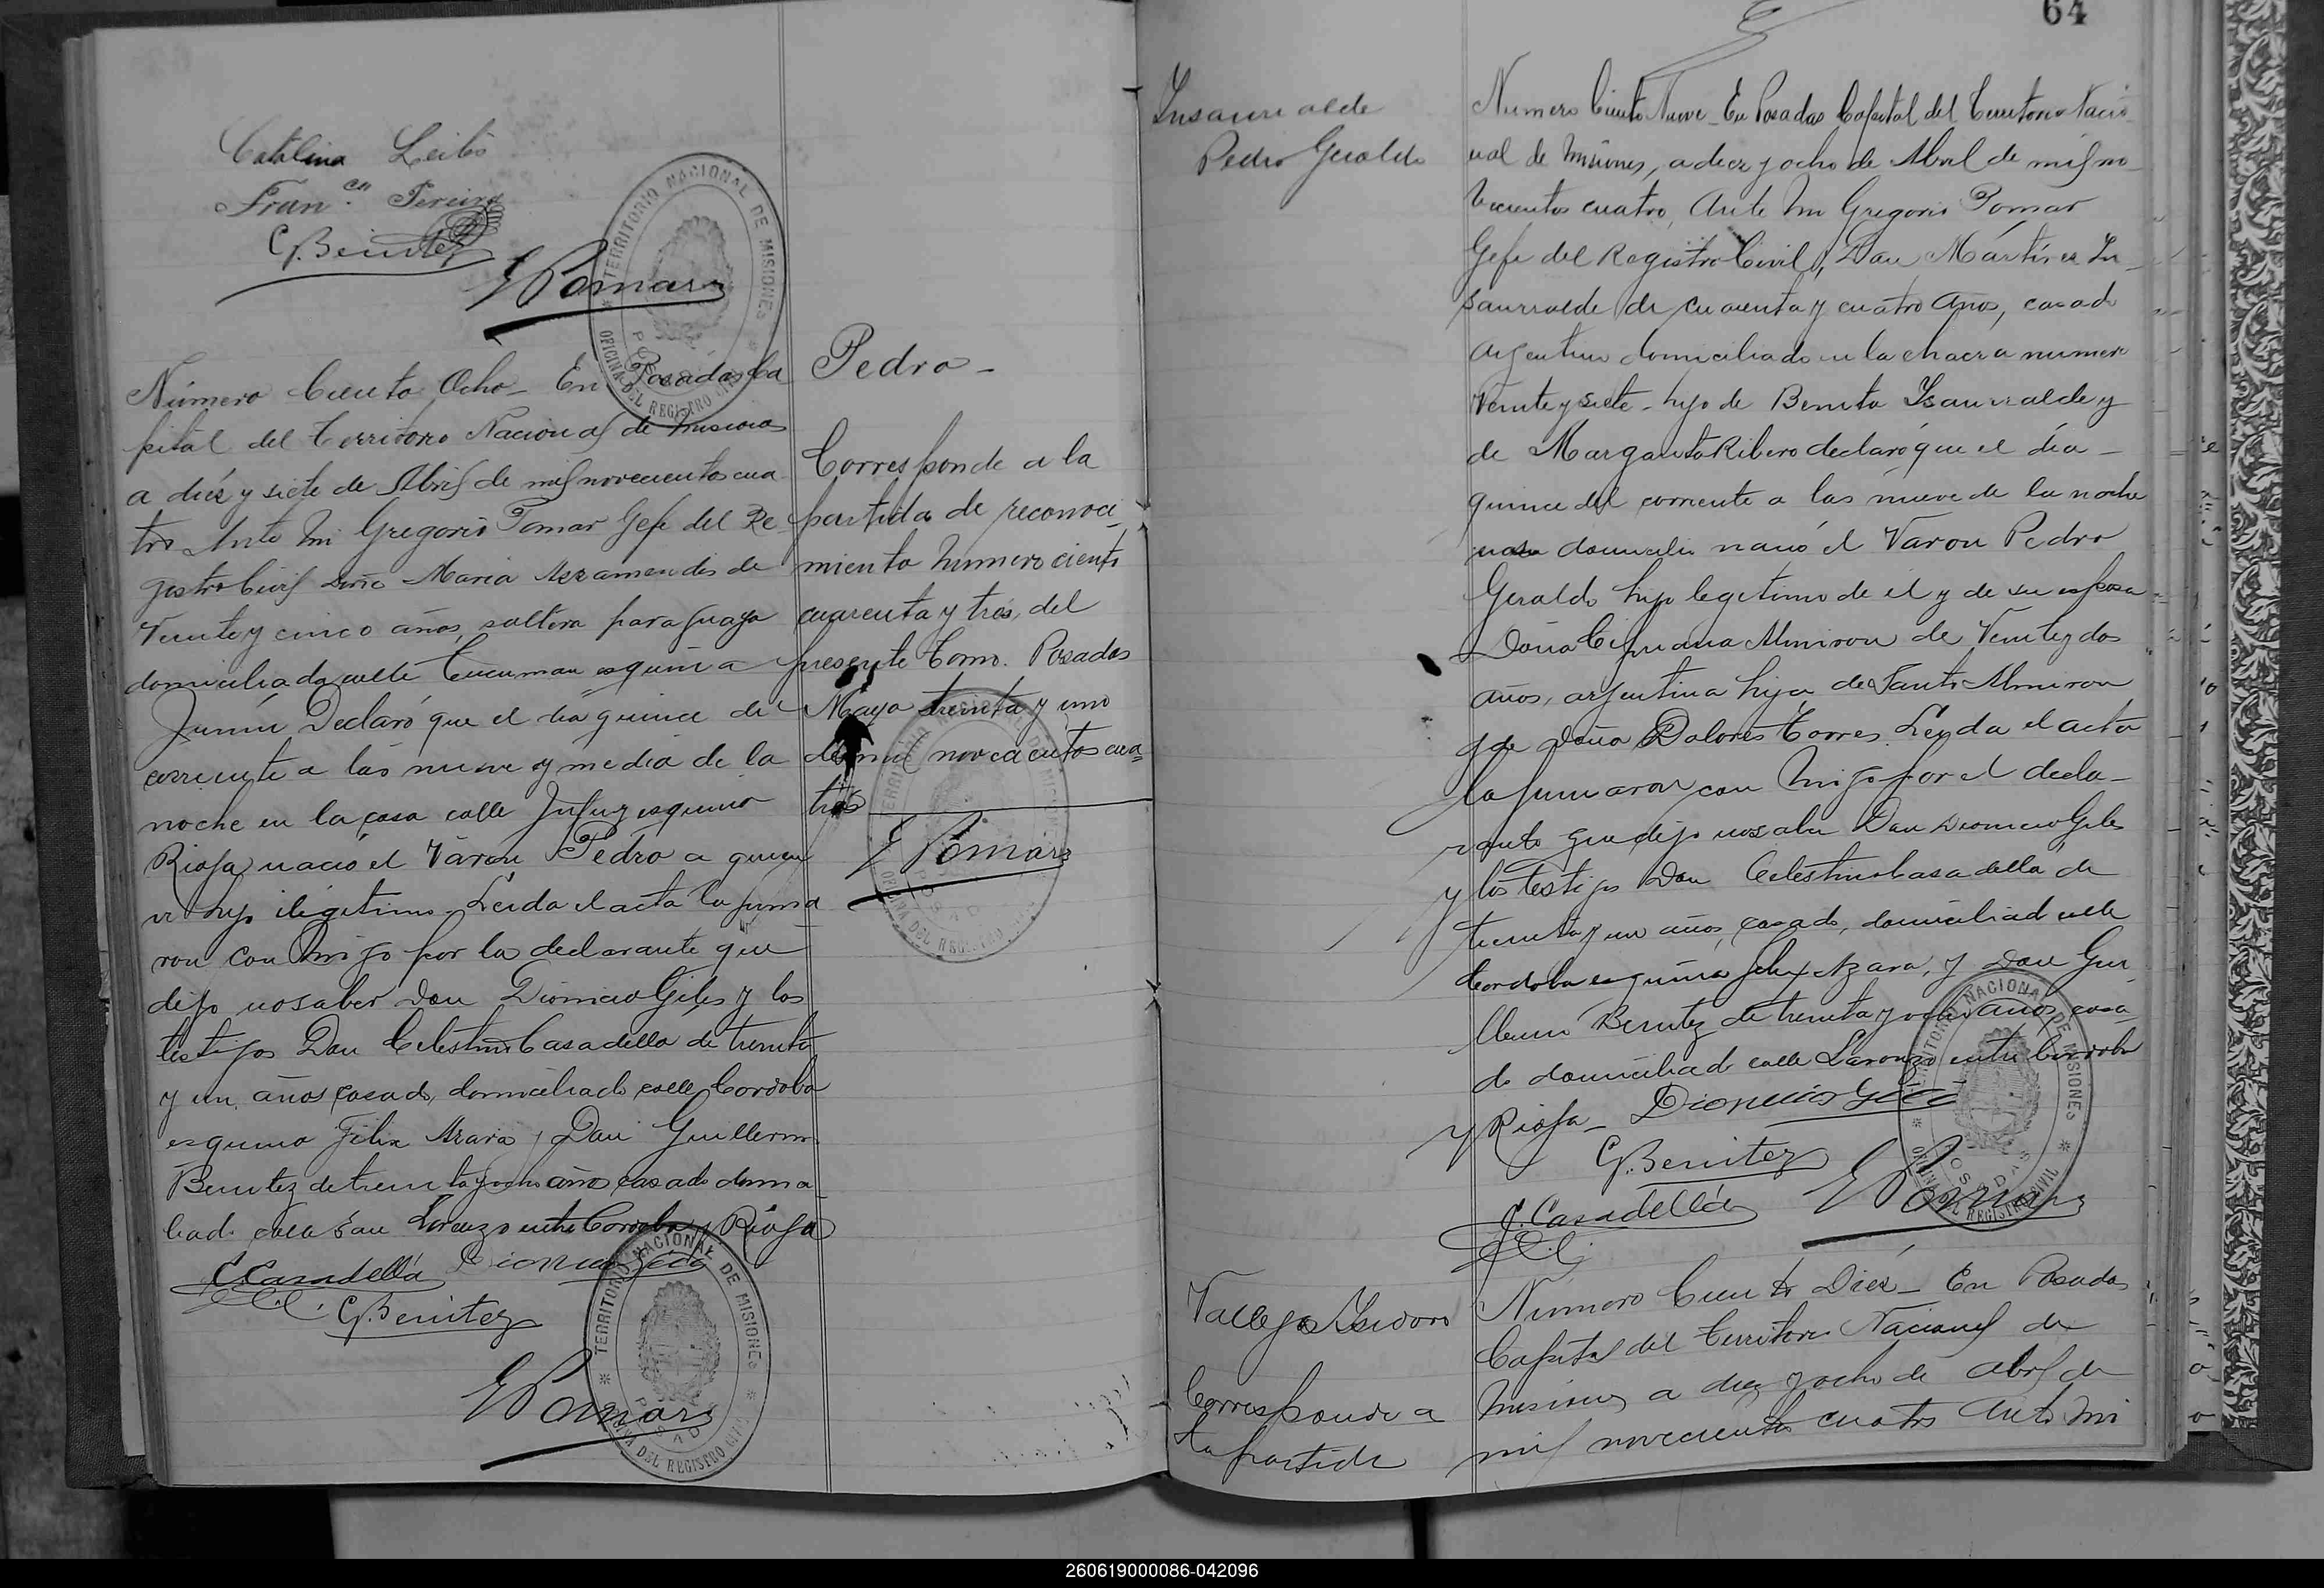 Catalina Leites
Fran.co Pereira
G. Benitez
G Pomar
TERRITORIO NACIONAL DE MISIONES
OFICINA DEL REGISTRO CIVIL
POSADAS
Número Ciento Ocho_ En Posadas Ca
pital del Territorio Nacional de Misiones
a diéz y siete de Abril de mil novecientos cua
tro Ante Mi Gregorio Pomar Gefe del Re
gistro Civil doña Maria Azamendis de
Veinte y cinco años, soltera paraguaya
domiciliada calle Tucuman esquina
Junín Declaró que el dia quince del
corriente a las nueve y media de la
noche en la casa calle Jujuy esquina
Rioja nació el Varón Pedro a quien
hijo ilegitimo. Leida el acta la firma
ron con Migo por la declarante que
dijo no saber Don Dionicio Giles y los
testigos Don Celestino Casadella de treinta
y un años casado, domiciliado calle Cordoba
esquina Felix Azara y Don Guillermo
Benitez de treinta y ocho años casado domici
liado calle San Lorenzo entre Cordoba y Rioja
C. Casadellá Dionicio Giles
G. Benitez
G Pomar
TERRITORIO NACIONAL DE MISIONES
OFICINA DEL REGISTRO CIVIL
POSADAS
Pedro_
Corresponde a la
partida de reconoci
miento número ciento
cuarenta y tres, del
presente tomo. Posadas
Mayo treinta y uno
de mil novecientos cua=
tro
G Pomar
TERRITORIO NACIONAL DE MISIONES
OFICINA DEL REGISTRO CIVIL
POSADAS
64
Insaurralde
Pedro Geraldo
Numero Ciento Nueve_ En Posadas Capital del Territorio Nacio
nal de Misiones, a diez y ocho de Abril de mil no
vecientos cuatro, Ante Mi Gregorio Pomar
Gefe del Registro Civil, Don Mártires In_
saurralde de cuarenta y cuatro años, casado
argentino domiciliado en la chacra numero
Veinte y siete_ hijo de Benito Ysaurralde y
de Margarita Ribero declaró que el día_
quince del corriente a las nueve de la noche
domicilio nació el Varon Pedro
Geraldo hijo legitimo de él y de su esposa
Doña Cipriana Almiron de Veinte y dos
años, argentina hija de Santos Almiron
y de doña Dolores Torres. Leida el acta
la firmaron con Migo por el decla_
rante que dijo no saber Don Dionicio Giles
y los testigos Don Celestino Casadella de
treinta y un años, casado, domiciliado calle
Cordoba esquina Felix Azara, y Don Gui
llermo Benitez de treinta y ocho años, casa_
do domiciliado calle S. Lorenzo entre Cordoba
y Rioja_ Dionicio Giles
G. Benitez
C. Casadellá
G Pomar
TERRITORIO NACIONAL DE MISIONES
OFICINA DEL REGISTRO CIVIL
POSADAS
Vallejos Ysidoro
Corresponde a
la partida
Número Ciento Diéz_ En Posadas
Capital del Territorio Nacional de
Misiones a diez y ocho de Abril de
mil novecientos cuatro Ante Mi
260619000086-042096